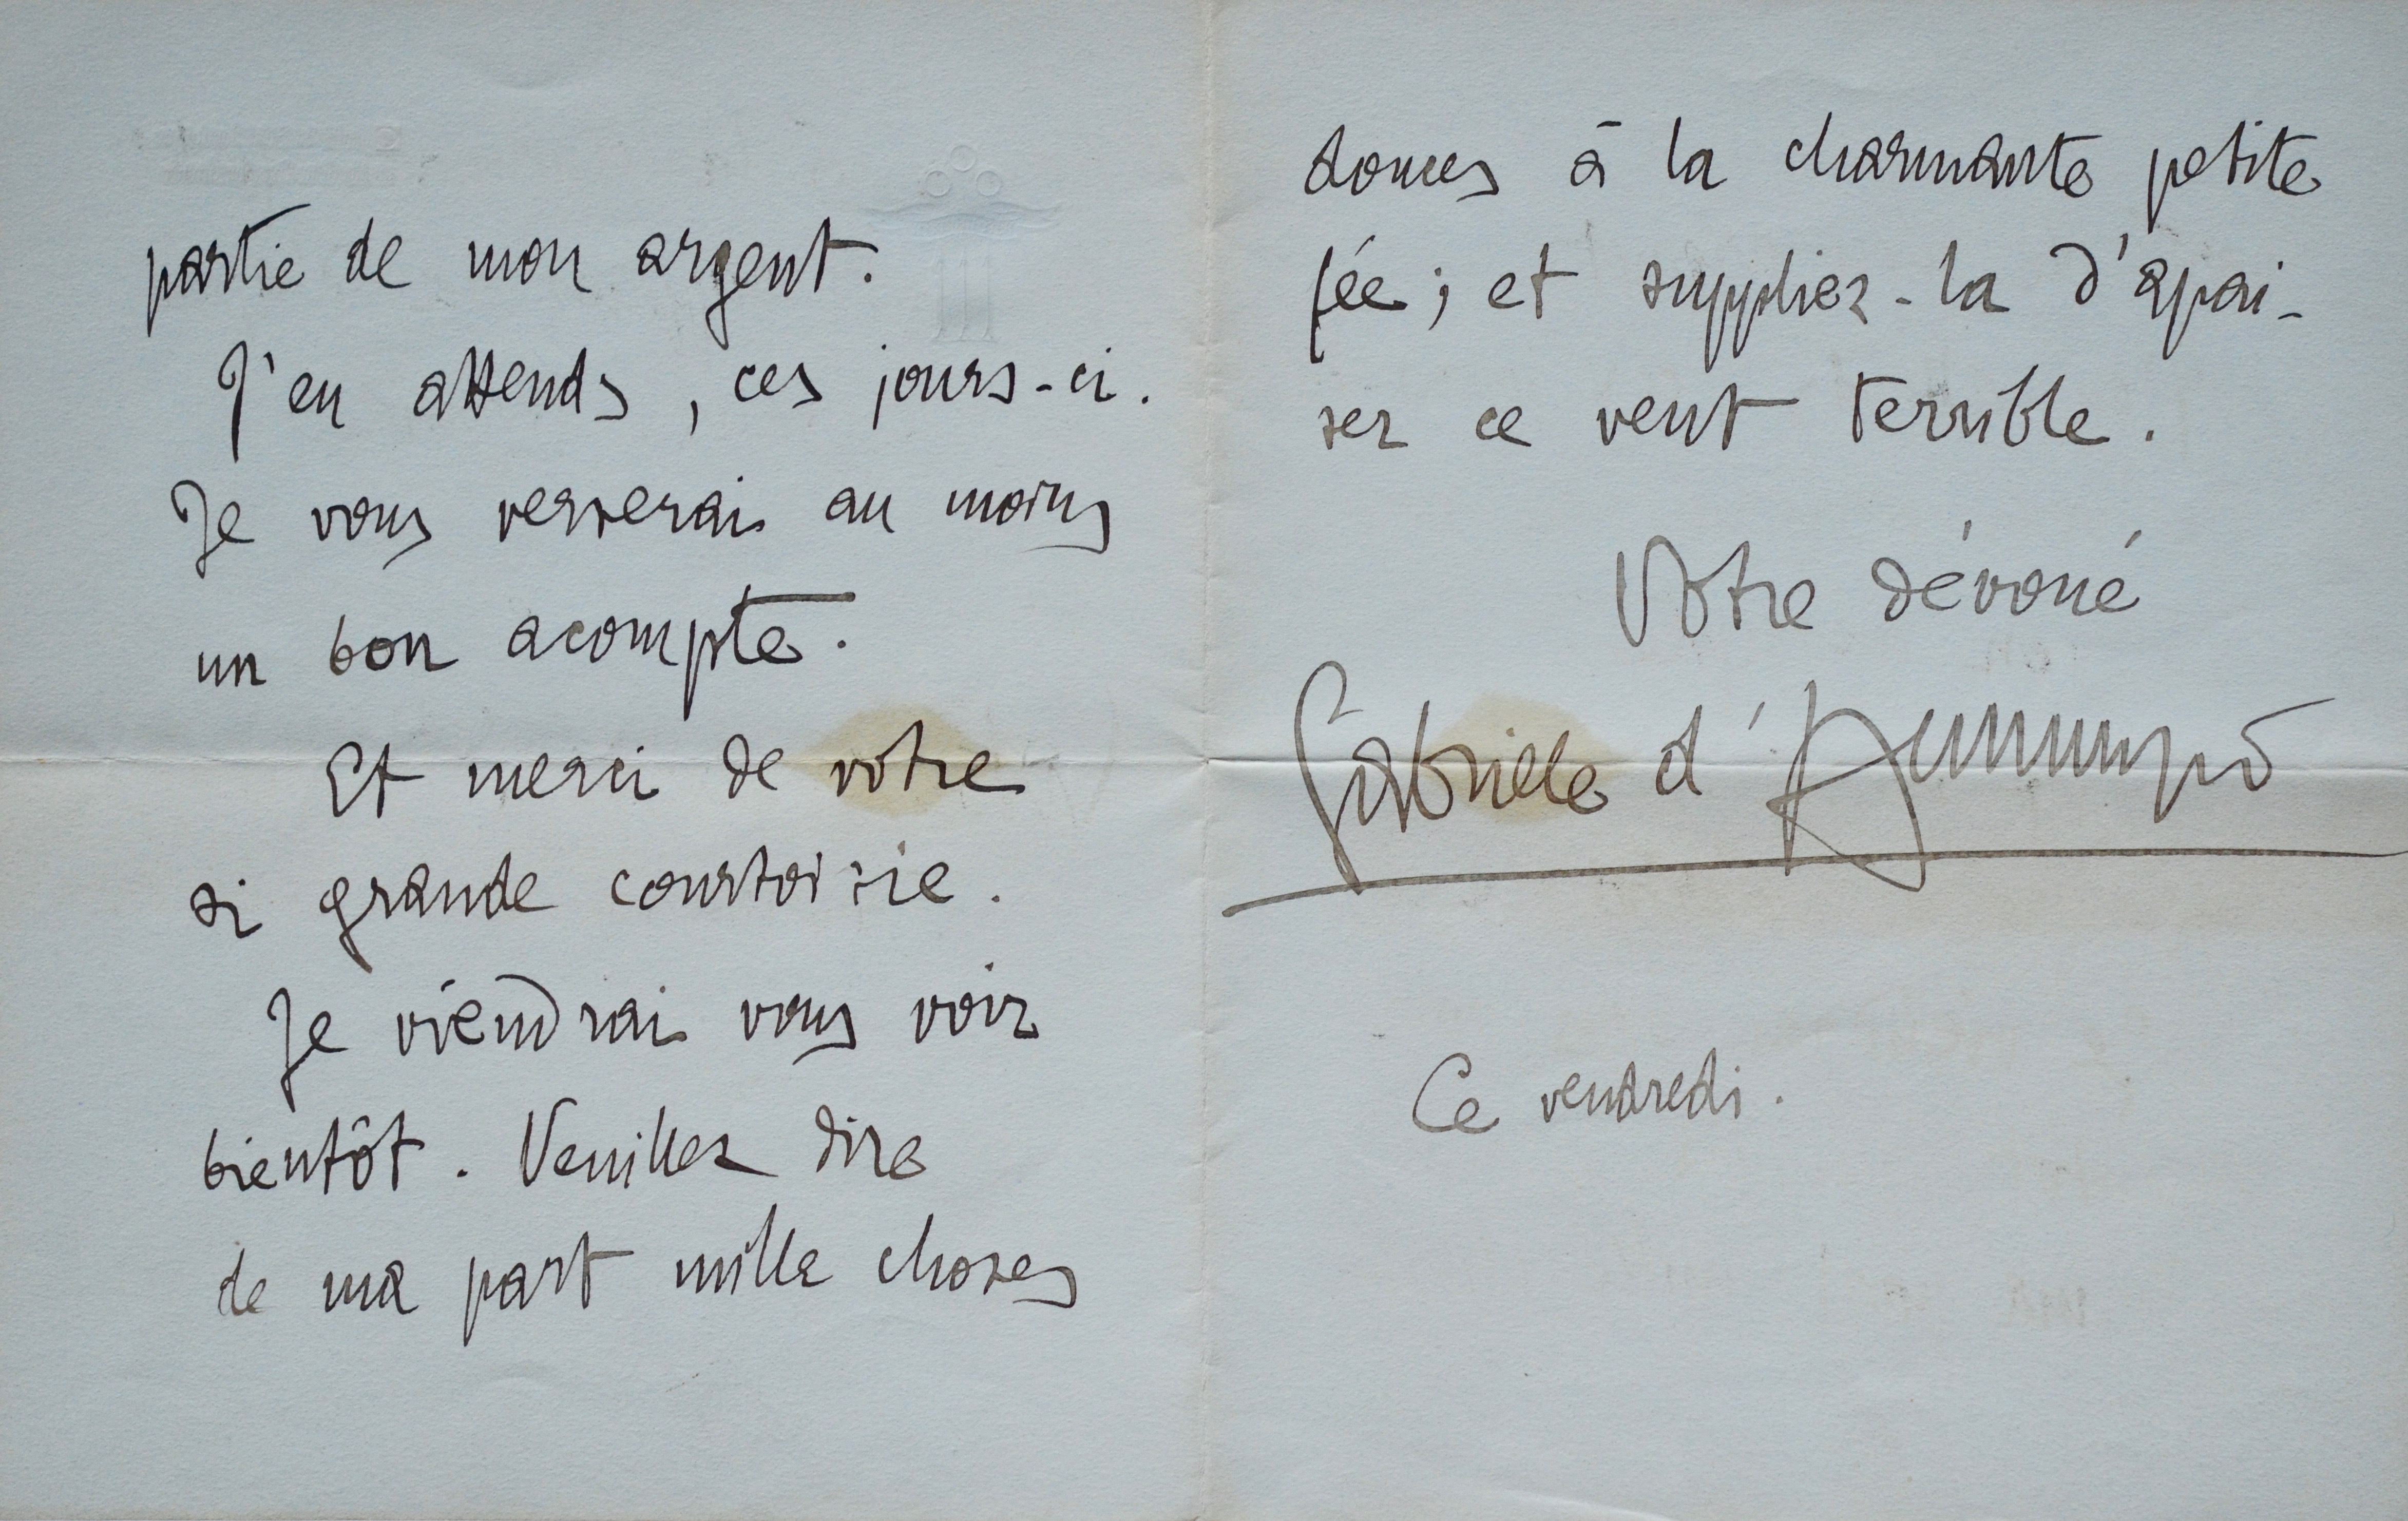 partie de mon argent.
J'en attends, ces jours-ci.
Je vous verserais au moins
un bon acompte.
Et merci de votre
si grande courtoisie.
Je viendrai vous voir
bientôt. Veuillez dire
de ma part mille choses
douces à la charmante petite
fée; et suppliez-la d'apai-
ser ce vent terrible.
Votre dévoué
Gabriele d'Annunzio
Ce vendredi.